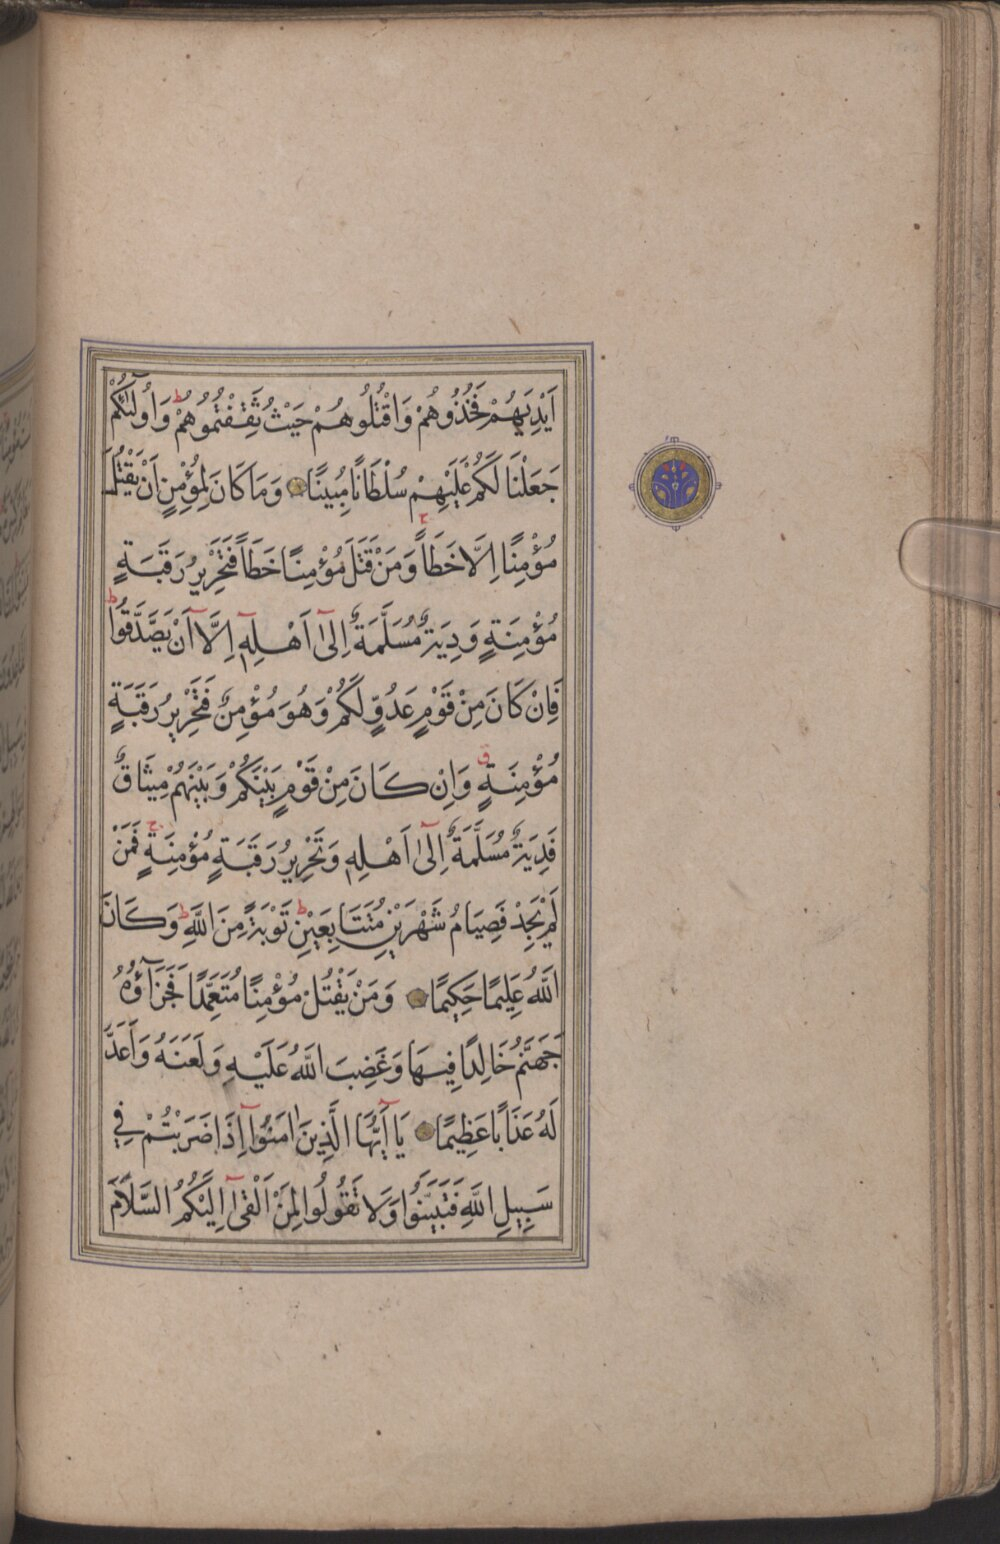 اَيْدِيَهُمْ فَخُذُوهُمْ وَاقْتُلُوهُمْ حَيْثُ ثَقِفْتُمُوهُمْ ط وَاُولٰٓئِكُمْ
جَعَلْنَا لَكُمْ عَلَيْهِمْ سُلْطَانًا مُبِينًا وَمَا كَانَ لِمُؤْمِنٍ اَنْ يَقْتُلَ
مُؤْمِنًا اِلَّا خَطَأً ج وَمَنْ قَتَلَ مُؤْمِنًا خَطَأً فَتَحْرِيرُ رَقَبَةٍ
مُؤْمِنَةٍ وَدِيَةٌ مُسَلَّمَةٌ اِلٰٓى اَهْلِهٖٓ اِلَّآ اَنْ يَصَّدَّقُوا ط
فَاِنْ كَانَ مِنْ قَوْمٍ عَدُوٍّ لَكُمْ وَهُوَ مُؤْمِنٌ فَتَحْرِيرُ رَقَبَةٍ
مُؤْمِنَةٍ ق وَاِنْ كَانَ مِنْ قَوْمٍ بَيْنَكُمْ وَبَيْنَهُمْ مِيثَاقٌ
فَدِيَةٌ مُسَلَّمَةٌ اِلٰٓى اَهْلِهٖ وَتَحْرِيرُ رَقَبَةٍ مُؤْمِنَةٍ ج فَمَنْ
لَمْ يَجِدْ فَصِيَامُ شَهْرَيْنِ مُتَتَابِعَيْنِ ط تَوْبَةً مِنَ اللَّهِ ط وَكَانَ
اللَّهُ عَلِيمًا حَكِيمًا وَمَنْ يَقْتُلْ مُؤْمِنًا مُتَعَمِّدًا فَجَزَآؤُهُ
جَهَنَّمُ خَالِدًا فِيهَا وَغَضِبَ اللَّهُ عَلَيْهِ وَلَعَنَهُ وَاَعَدَّ
لَهُ عَذَابًا عَظِيمًا يَآ اَيُّهَا الَّذِينَ اٰمَنُوٓا اِذَا ضَرَبْتُمْ فِي
سَبِيلِ اللَّهِ فَتَبَيَّنُوا وَلَا تَقُولُوا لِمَنْ اَلْقٰٓى اِلَيْكُمُ السَّلَامَ